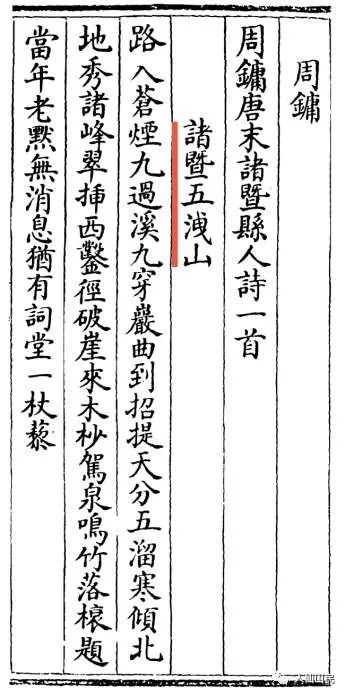 周鏞
周鏞唐末諸暨縣人詩一首
諸暨五洩山
路入蒼煙九過溪九穿巖曲到招提天分五溜寒傾北
地秀諸峰翠揷西鑿徑破崖來木杪駕泉鳴竹落榱題
當年老默無消息猶有詞堂一杖藜